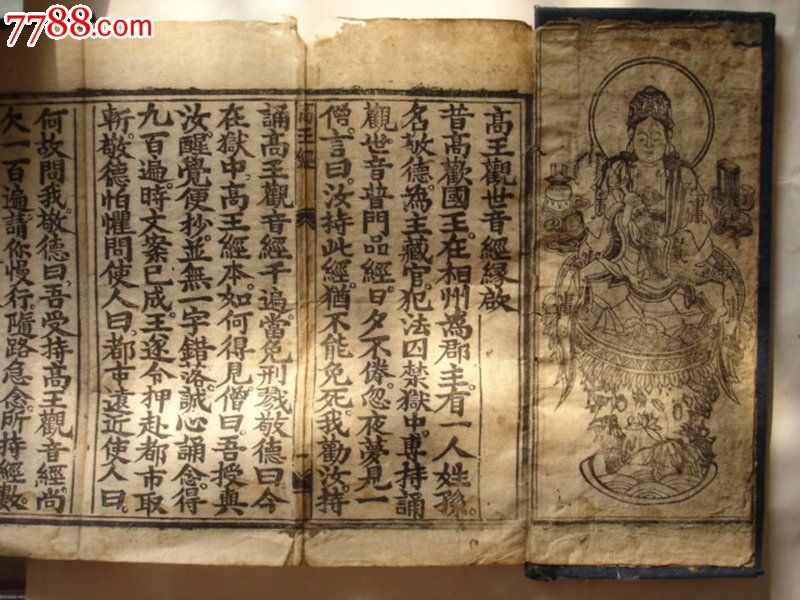 7788.com
高王觀世音經緣啟
昔高歡國王。在相州為郡主。有一人姓孫。
名敬德。為主藏官。犯法囚禁獄中。專持誦
觀世音普門品經。日夕不倦。忽夜夢見一
僧。言曰。汝持此經。猶不能免死。我勸汝持
高王經 一
誦高王觀音經千遍。當免刑戮。敬德曰。今
在獄中。高王經本。如何得見。僧曰。吾授與
汝。醒覺便抄。並無一字錯落。誠心誦念。得
九百遍。時文案已成。王遂令押赴都市取
斬。敬德怕懼。問使人曰。都市遠近。使人曰。
何故問我。敬德曰。吾受持高王觀音經。尚
欠一百遍。請你慢行。隨路急念所持經數。